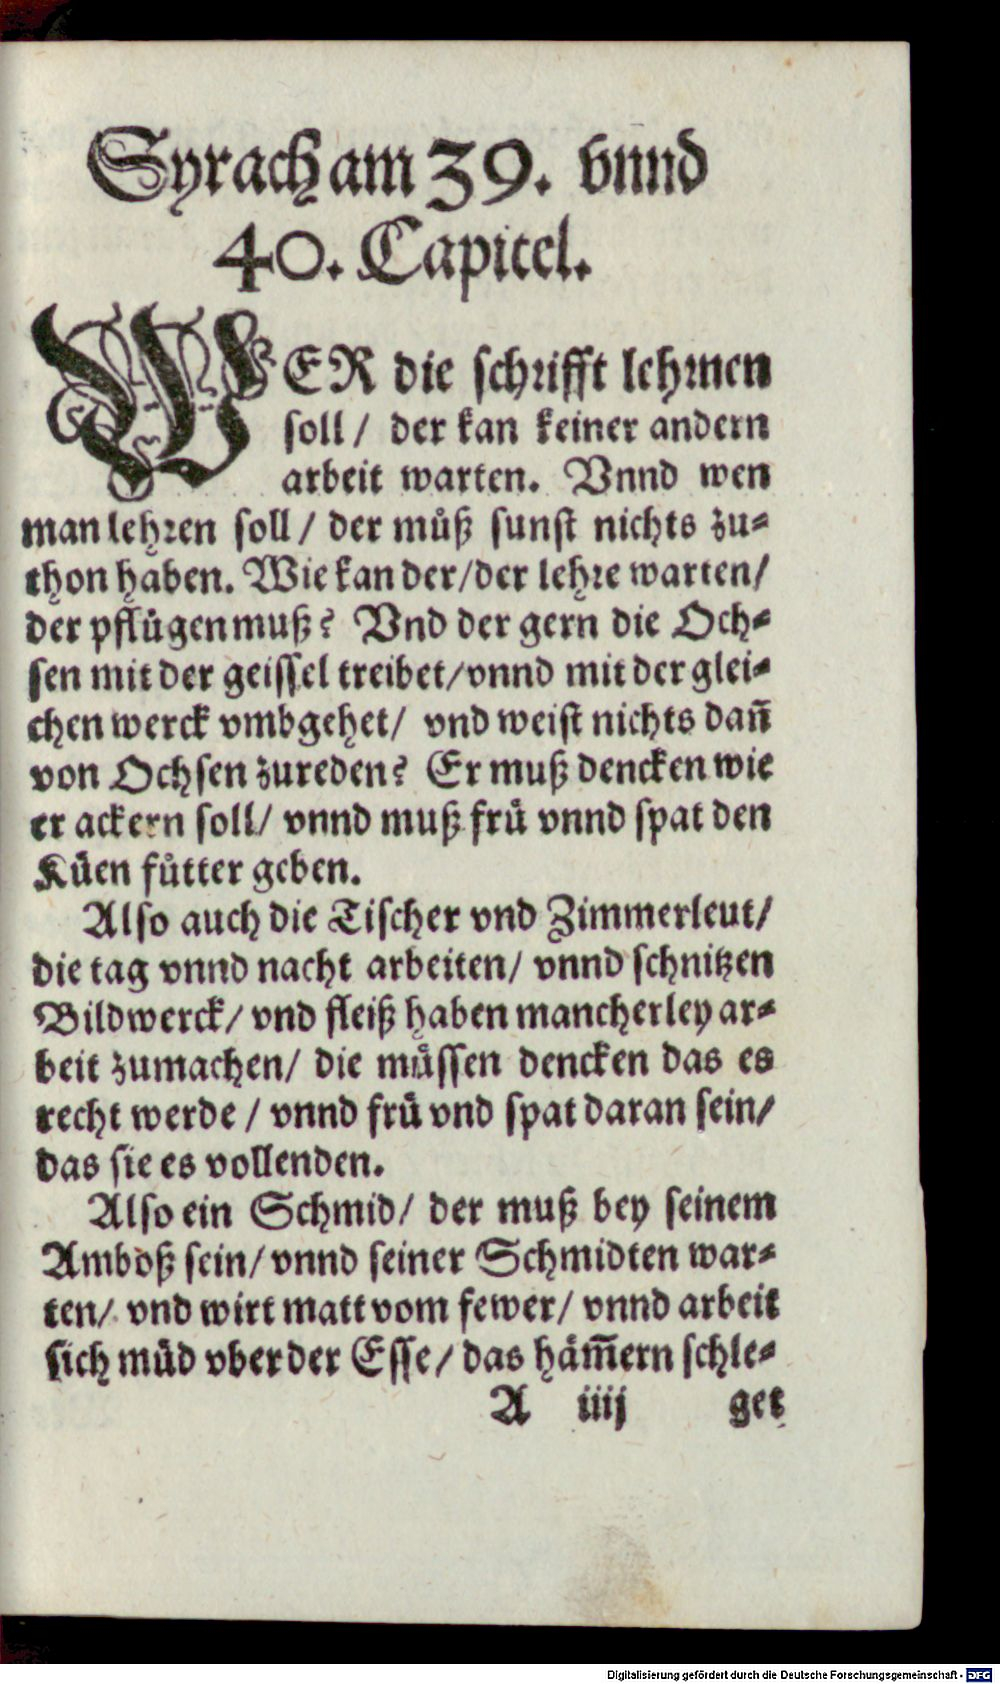 Syrach am 39. vnnd
40. Capitel.
WER die schrifft lehrnen
soll / der kan keiner andern
arbeit warten. Vnnd wen
man lehren soll / der můß sunst nichts zu⸗
thon haben. Wie kan der / der lehre warten /
der pflügen muß? Vnd der gern die Och⸗
sen mit der geissel treibet / vnnd mit der glei⸗
chen werck vmbgehet / vnd weist nichts dañ
von Ochsen zureden? Er muß dencken wie
er ackern soll / vnnd muß frü vnnd spat den
Küen fůtter geben.
Also auch die Tischer vnd Zimmerleut /
die tag vnnd nacht arbeiten / vnnd schnitzen
Bildwerck / vnd fleiß haben mancherley ar⸗
beit zumachen / die müssen dencken das es
recht werde / vnnd frü vnd spat daran sein /
das sie es vollenden.
Also ein Schmid / der muß bey seinem
Amboß sein / vnnd seiner Schmidten war⸗
ten / vnd wirt matt vom fewer / vnnd arbeit
sich müd vber der Esse / das häm̃ern schle⸗
A iiij get
Digitalisierung gefördert durch die Deutsche Forschungsgemeinschaft - DFG